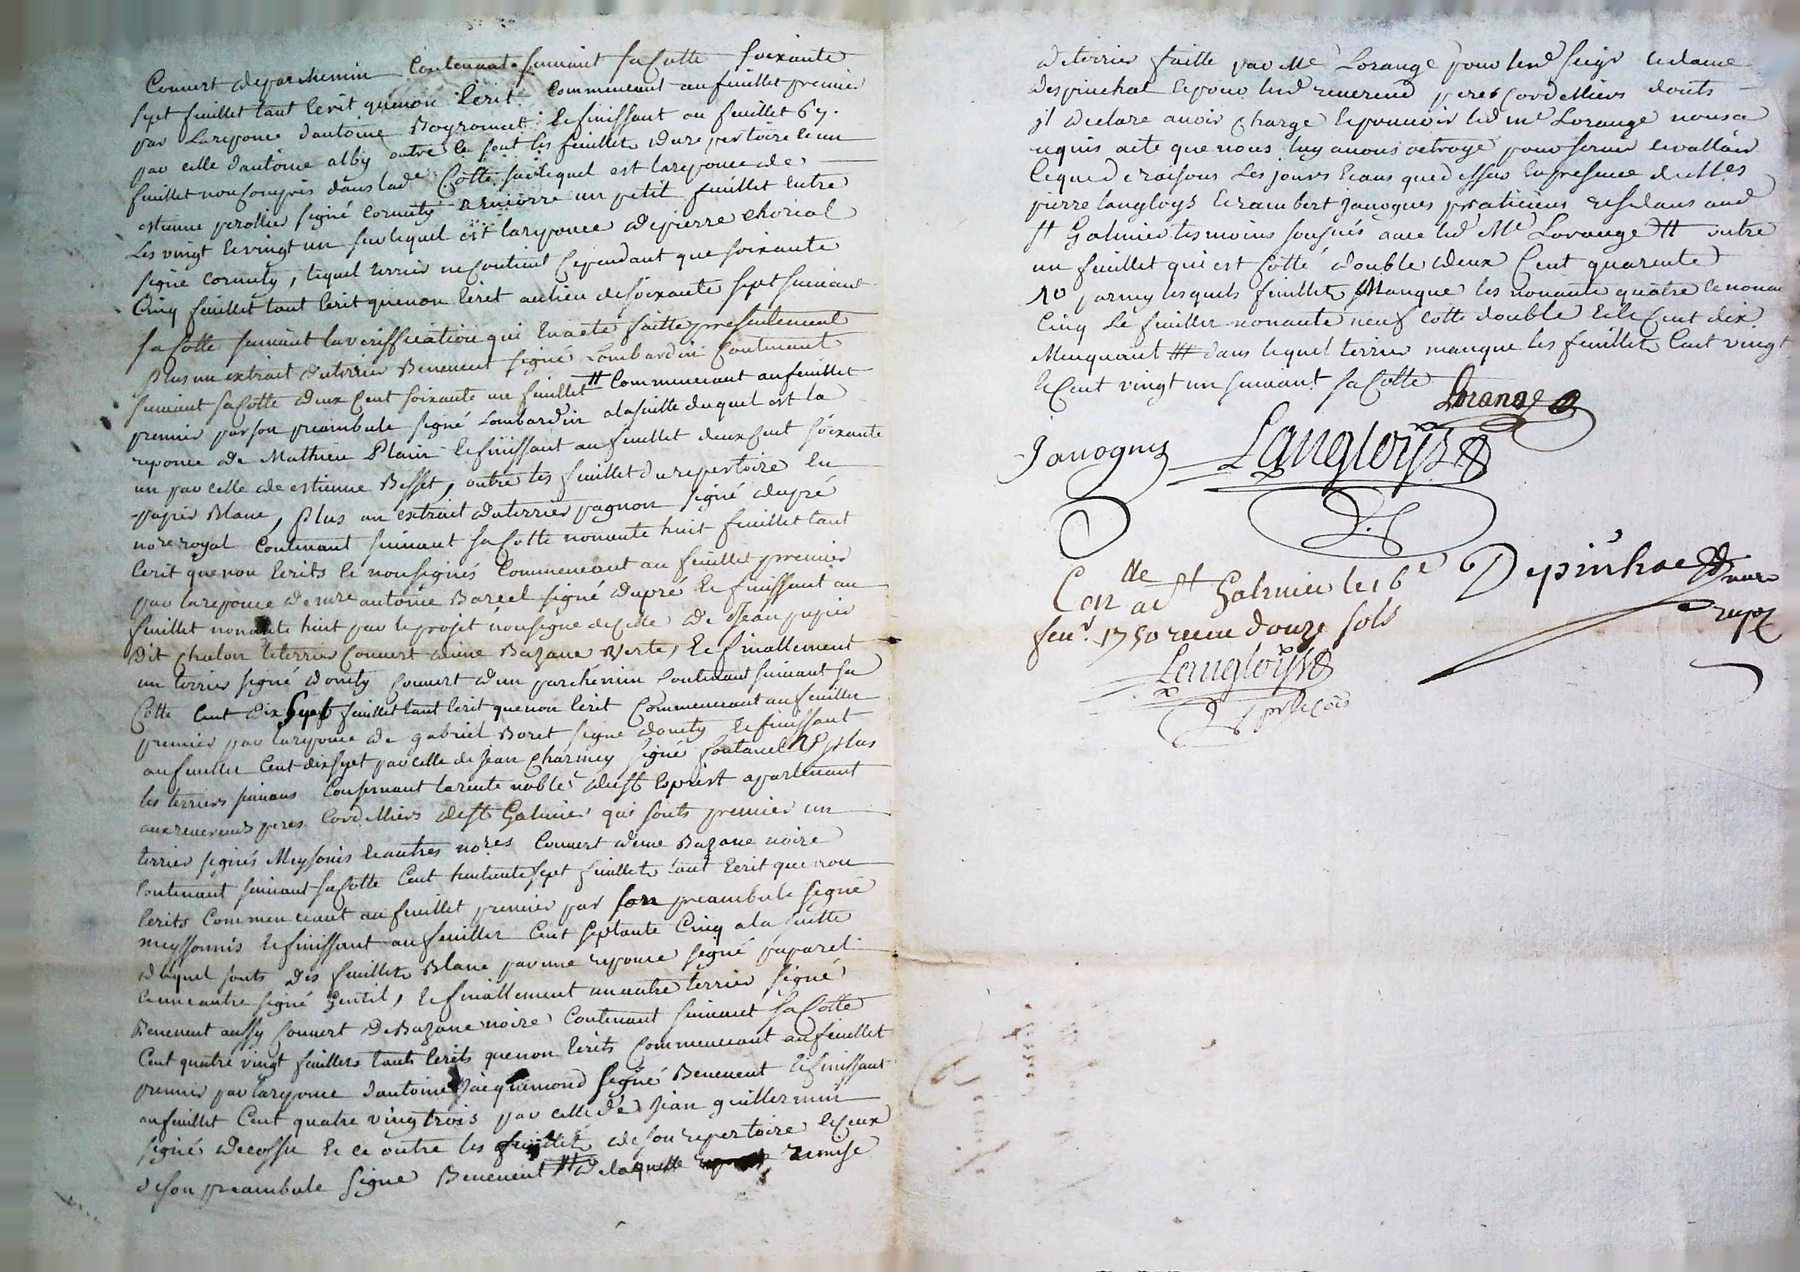 Couvert deparchemin Contenant suivant sa Cotte soixante
sept feuillet tant Ecrit quenon Ecrit Commencant au feuillet premier
par Lareponce dantoine Boyronnet, Le finissant au feuillet 67.
par celle dantoine alby outre ce sont les feuillets du repertoire Le un
feuillet non Compris dans lad.e Cotte surlequel est lareponce de
estienne perollier signé Cornuty encorre un petit feuillet Entre
Les vingt Levingt un surlequel est lareponce depierre chorial
signé Cornuty, lequel terrier ne Contient Cependant que soixante
Cinq feuillet tant Ecrit quenon Ecrit aulieu desoixante sept suivant
sa Cotte suivant laveriffication qui Enaeté faitte presentement
plus un extrait duterrier Benevent signé Lombardin Contenant
suivant sa Cotte deux Cent soixante un feuillet # Commencant aufeuillet
premier par son preambule signé Lombardin alasuitte duquel est la
reponce de Mathieu Plain Le finissant au feuillet deux Cent soixante
un par celle de estienne Besset, outre les feuillet du repertoire En
papier Blanc, plus un extrait duterrier pagnon signé dupré
no.re royal Contenant suivant sa Cotte nonante huit feuillet tant
Ecrit que non Ecrits Le nonsignés Commencant au feuillet premier
par lareponce de me antoine Bareel signé dupré Le finissant au
feuillet nonante huit par le projet nonsigné decelle de Jean papier
dit chalon Leterrier Couvert dune Bazane Verte, Le finallement
un terrier signé donity Couvert dun parchemin Contenant suivant sa
Cotte Cent dix sept feuillet tant Ecrit que non Ecrit Commencant aufeuillet
premier par lareponce de gabriel Boret signé donity Le finissant
aufeuillet Cent dix sept par celle de Jean Charmey signé fontanel & plus
les terriers suivans Conçernant larente noble de St Esprit apartenant
aux reverends peres Cordelliers de St Galmier qui sonts premier un
terrier signés Meysonis Leautres no.res Couvert dune Bazane noire
Contenant suivant sa Cotte Cent huitante sept feuillets tant Ecrit que non
Ecrits Commencant au feuillet premier par son preambule signé
meyssonnis Le finissant au feuillet Cent septante Cinq ala suitte
duquel sonts des feuillets Blanc par une reponce signé paparel
Le une autre signé Gentil, Le finallement un autre terrier signé
Benevent aussy Couvert de Bazane noire Contenant suivant sa Cotte
Cent quatre vingt feuillets tants Ecrits que non Ecrits Commencant au feuillet
premier par lareponce dantoine Jacquemond signé Benevent Le finissant
au feuillet Cent quatre vingtrois par celle de Jean guillermin
signé decossu Le ce outre les feuillets de son repertoire Leceux
deson preambule signé Benevent # delaquelle remise
deterrier faitte par Me Lorange pour led seigr Ledame
despinchal Lepour led reverend peres Cordelliers donts
il declare avoir Charge Lepouvoir led me Lorange nousa
requis acte que nous luy avons octroyé pour servir Levalloir
Ceque de raisons Les jours Lans que dessus En presence de Mes
pierre langloys Lerambert Janoques praticiens residans aud
St Galmier tesmoins sousnés avec led Me Lorange # outre
un feuillet qui est Cotté double deux Cent quarente
parmy lesquels feuillets Manque les nonante quatre Lenonan
Cinq Le feuillet nonante neuf Cotté double Le Cent dix
Menquant ## dans lequel terrier manque les feuillets Cent vingt
Le Cent vingt un suivant sa Cotte
Lorange
Janoques
Langloys
Depinhac
Con.lle a St Galmier le 16e
feur. 1750 receu douze sols
Langloys